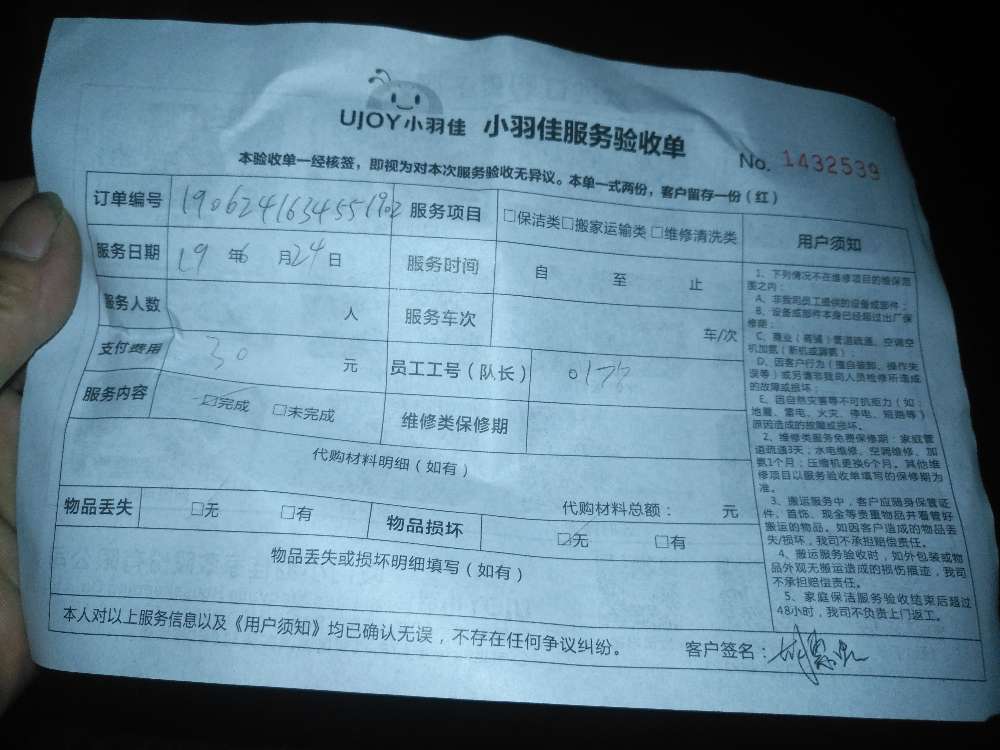 UJOY小羽佳 小羽佳服务验收单
No. 1432539
本验收单一经核签，即视为对本次服务验收无异议。本单一式两份，客户留存一份（红）
订单编号 服务项目 □保洁类□搬家运输类□维修清洗类
服务日期 19年6月24日 服务时间 自 至 止
服务人数 人 服务车次 车/次
支付费用 30 元 员工工号（队长）
服务内容 ☑完成 □未完成 维修类保修期
代购材料明细（如有）
代购材料总额： 元
物品丢失 □无 □有 物品损坏 ☑无 □有
物品丢失或损坏明细填写（如有）
本人对以上服务信息以及《用户须知》均已确认无误，不存在任何争议纠纷。
客户签名：
用户须知
1、下列情况不在维修项目的维保范
围之内：
A、非我司员工提供的设备或部件；
B、设备或部件本身已经超过出厂保
修期；
C、商业（商铺）管道疏通、空调空
机加氨（新机或漏氨）；
D、因客户行为（擅自装卸、操作失
误等）或另请非我司人员检修所造成
的故障或损坏；
E、因自然灾害等不可抗拒力（如：
地震、雷电、火灾、停电、短路等）
原因造成的故障或损坏。
2、维修类服务免费保修期：家庭管
道疏通3天；水电维修、空调维修、加
氨1个月；压缩机更换6个月。其他维
修项目以服务验收单填写的保修期为
准。
3、搬运服务中，客户应随身保管证
件、首饰、现金等贵重物品并看管好
搬运的物品。如因客户造成的物品丢
失/损坏，我司不承担赔偿责任。
4、搬运服务验收时，如外包装或物
品外观无搬运造成的损伤痕迹，我司
不承担赔偿责任。
5、家庭保洁服务验收结束后超过
48小时，我司不负责上门返工。